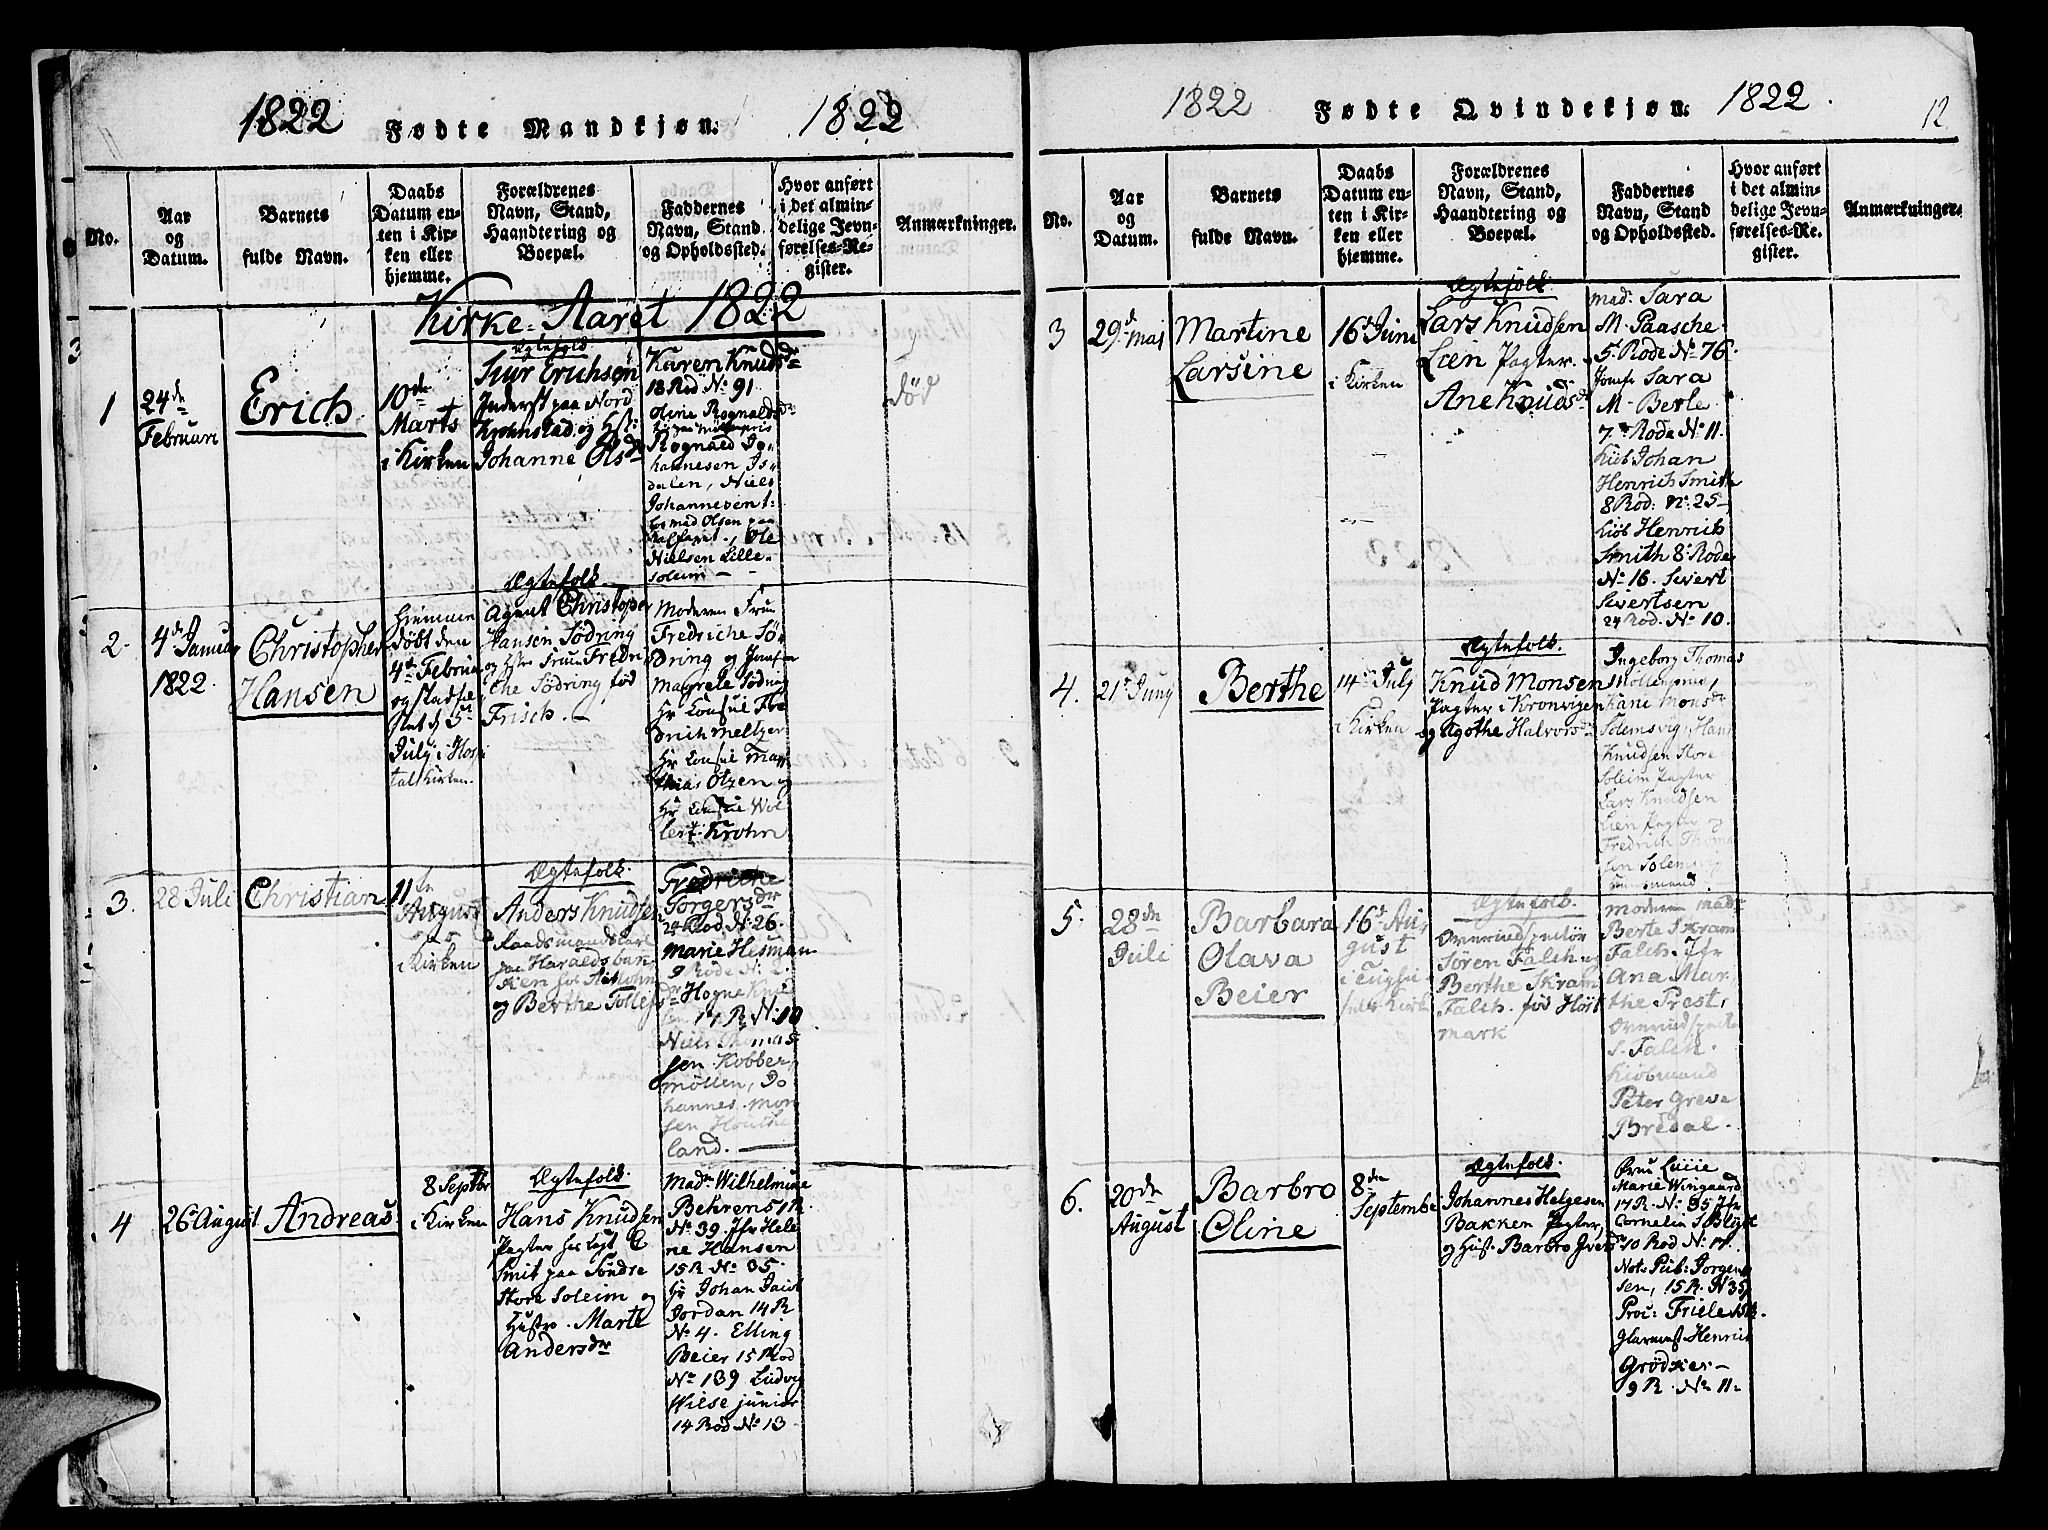 1822 Fødte Mandkjøn. 1822
No.
Aar
og
Datum.
Barnets
fulde Navn.
Daabs
Datum en-
ten i Kir-
ken eller
hjemme.
Forældrenes
Navn, Stand,
Haandtering og
Boepæl.
Faddernes
Navn, Stand
og Opholdssted.
Hvor anført
i det almin-
delige Jevn-
førelses-Re-
gister.
Anmærkninger.
Kirke-Aaret 1822
1
24de
Februari
Erich
10de
Marts
i Kirken
Ægtefolk
Siur Erichsen
Inderst paa Nord
Krohnstad og Hst:
Johanne Olsdr
Karen Knudsdr
18 Rod No 91
Oline Rognaldsdr
Rognald Jo-
hannesen Is-
dalen, Niels
Johannesen t:
hos mad Olsen paa
Ole
Nielsen Lille-
Soleim
død
2
4de Januar
1822
Christopher
Hansen
Hiemme
døbt den
4de Februar
og stadfæ
stet d 5te
July i Hospi
talkirken.
Ægtefolk.
Agent Christopher
Hansen Södring
og Hstr Frue Fredri
che Södring fød
Frisch.
Moderen Frue
Fredriche Sö-
dring og Jomfru
Magrete Södring
Hr Consul Fre
drich Meltzer
Hr Consul Mat
thias Olzen og
Hr Consul Wol
lert Krohn
3.
28 Juli
Christian
11te
August
i Kirken
Ægtefolk.
Anders Knudsen
Raadsmandskarl
paa Haraldsbak
ken hos
og Berthe Tollefsdr
Fredriche
Torgersdr
24 Rod No 26.
Marie Hesman
9 Rode No 2.
Hogne Knud
17 R. No 10
Niels Thomas-
sen Kobber-
möllen, Jo
hannes Mon
sen Houke
land.
4
26 August
Andreas
8 Septbr
i Kirken
Ægtefolk.
Hans Knudsen
Pagter hos Capt C
Smit paa Söndre
Store Soleim og
Hustro. Marte
Andersdr
Madm Wilhelmine
Behrens 1 R
No 39. Jfr Hele
ne Hansen
15 R No 35.
Hr Johan Jacob
Jordan 14 R
No 4. Elling
Beier 15 Rod
No 139 Ludvig
Wilse junior
14 Rod No 13
1822 Fødte Qvindekjøn. 1822.
12
No.
Aar
og
Datum.
Barnets
fulde Navn.
Daabs
Datum en-
ten i Kir-
ken eller
hjemme.
Forældrenes
Navn, Stand,
Haandtering og
Boepæl.
Faddernes
Navn, Stand
og Opholdssted.
Hvor anført
i det almin-
delige Jevn-
førelses-Re-
gister.
Anmærkninger.
3
29d Maj
Martine
Larsine
16d Juni
i Kirken
Ægtefolk
Lars Knudsen
Lien Pagter.
Ane Knudsdr
Mad: Sara
M. Paasche
5 Rode No 76.
Jomfr Sara
M. Berle
7 Rode No 11.
Kiöb Johan
Henrich Smith
8 Rod: No: 25
Kiöb Henrich
Smith 8 Rode
No 16. Sivert
Sivertsen
24 Rod. No 10.
4.
21d Juny
Berthe
14d July
i Kirken
Ægtefolk.
Knud Monsen
Pagter i Kronvigen
og Agothe Halvorsdr
Ingeborg Thomas
Möllerpris,
Kari Monsdr
Solemsvig, Hans
Knudsen Store
Soleim Pagter
Lars Knudsen
Lien Pagter og
Fredrich Thoma
sen Solemsvig
5.
28de
Juli
Barbara
Olava
Beier
16d Au
gust
i Tugthu
set Kirke
Ægtefolk.
Overinspectör
Sören Falch og
Berthe Skram
Falch. fød Host
mark
Moderen mad:
Berte Skram
Falch. Jfr
Ana Mar-
the Prest,
Overindspectör
S. Falch.
Kiöbmand
Peter Greve
Bredal.
6.
20de
August
Barbro
Oline
8de
September
Ægtefolk.
Johannes Helgesen
Bakken Pagter,
og Hust. Barbro Iversdr
Lucie
Marie Wingaard
17 R. No 35 Jfr
Cornelia S Blyt
10 Rod No 17.
Not: Pub: Jorgen
sen, 15 R. No 35
Proc: Friele
Glarmest. Henrich
Grödker
9 R. No 11.